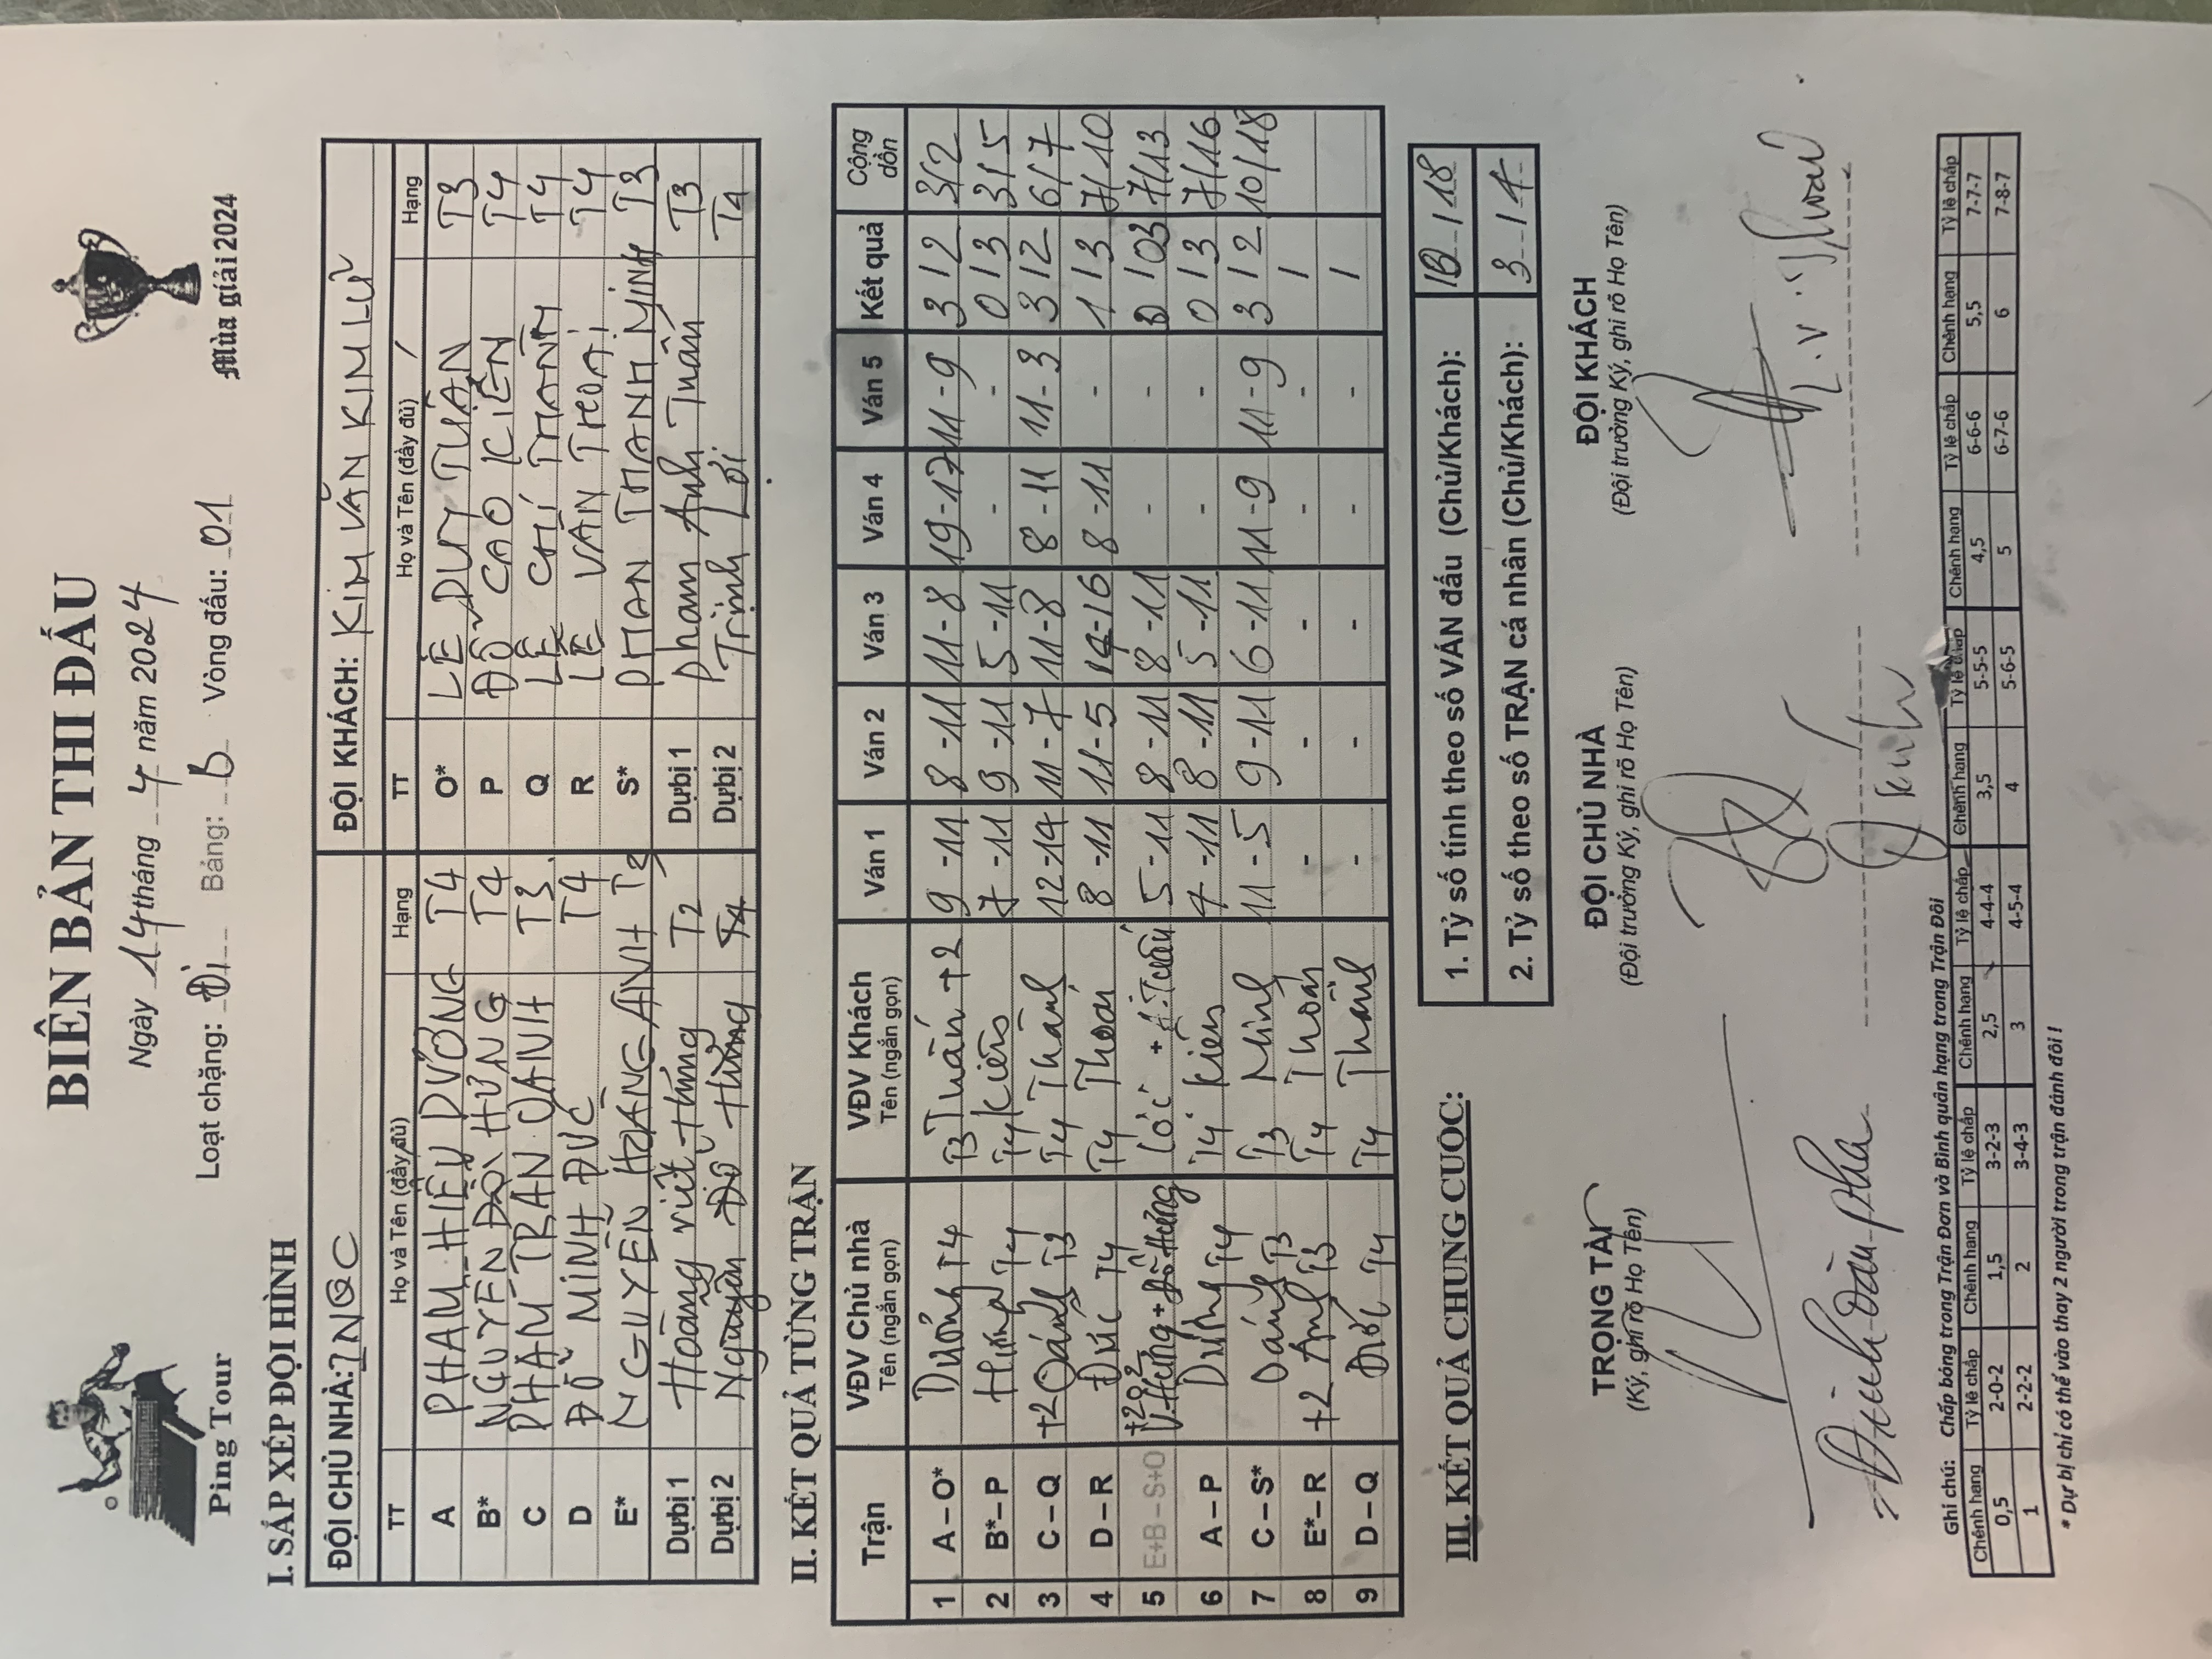 BIÊN BẢN THI ĐẤU
Ngày 14 tháng 4 năm 2024
Loạt chặng: Đi Bảng: B Vòng đấu: 01
Ping Tour
Mùa giải 2024
I. SẮP XẾP ĐỘI HÌNH
ĐỘI CHỦ NHÀ: ĐỘI KHÁCH: KIM VĂN KIM LŨ
TT Họ và Tên (đầy đủ) Hạng TT Họ và Tên (đầy đủ) Hạng
A PHẠM HIẾU DƯƠNG T4 O* LÊ DUY TUẤN T3
B* NGUYỄN ĐỘI HƯNG T4 P ĐỖ CAO KIÊN T4
C PHẠM TRẦN OANH T3 Q LÊ CHÍ THANH T4
D ĐỖ MINH ĐỨC T4 R LÊ VĂN THOẠI T4
E* NGUYỄN HOÀNG ANH S* PHAN THANH MINH T3
Dự bị 1 Hoàng Việt Hưng T2 Dự bị 1 Phạm Anh Tuấn T3
Dự bị 2 Nguyễn Đỗ Hưng T4 Dự bị 2 Trịnh Lợi T4
II. KẾT QUẢ TỪNG TRẬN
Trận VĐV Chủ nhà Tên (ngắn gọn) VĐV Khách Tên (ngắn gọn) Ván 1 Ván 2 Ván 3 Ván 4 Ván 5 Kết quả Cộng dồn
1 A – O* Dương T4 T3 Tuấn +2 9 - 11 8 - 11 11 - 8 19 - 17 11 - 9 3 / 2 3/2
2 B* – P Hưng T4 T4 Kiên 7 - 11 9 - 11 5 - 11 - - 0 / 3 3/5
3 C – Q +2 Oánh T3 T4 Thành 12 - 14 11 - 7 11 - 8 8 - 11 11 - 3 3 / 2 6/7
4 D – R Đức T4 T4 Thoại 8 - 11 11 - 5 14 - 16 8 - 11 - 1 / 3 7/10
5 E+B – S+O +202 V.Hưng + Đỗ Hưng + A.Tuấn 5 - 11 8 - 11 8 - 11 - - 0 / 3 7/13
6 A – P Dương T4 T4 Kiên 7 - 11 8 - 11 5 - 11 - - 0 / 3 7/16
7 C – S* Oánh T3 T3 Minh 11 - 5 9 - 11 6 - 11 11 - 9 11 - 9 3 / 2 10/18
8 E* – R +2 Anh T3 T4 Thoại - - - - - /
9 D – Q Đức T4 T4 Thành - - - - - /
III. KẾT QUẢ CHUNG CUỘC:
1. Tỷ số tính theo số VÁN đấu (Chủ/Khách): 10 / 18
2. Tỷ số theo số TRẬN cá nhân (Chủ/Khách): 3 / 4
TRỌNG TÀI ĐỘI CHỦ NHÀ ĐỘI KHÁCH
(Ký, ghi rõ Họ Tên) (Đội trưởng Ký, ghi rõ Họ Tên) (Đội trưởng Ký, ghi rõ Họ Tên)
Ghi chú: Chấp bóng trong Trận Đơn và Bình quân hạng trong Trận Đôi
Chênh hạng Tỷ lệ chấp Chênh hạng Tỷ lệ chấp Chênh hạng Tỷ lệ chấp Chênh hạng Tỷ lệ chấp Chênh hạng Tỷ lệ chấp Chênh hạng Tỷ lệ chấp
0,5 2-0-2 1,5 3-2-3 2,5 4-4-4 3,5 5-5-5 4,5 6-6-6 5,5 7-7-7
1 2-2-2 2 3-4-3 3 4-5-4 4 5-6-5 5 6-7-6 6 7-8-7
* Dự bị chỉ có thể vào thay 2 người trong trận đánh đôi !